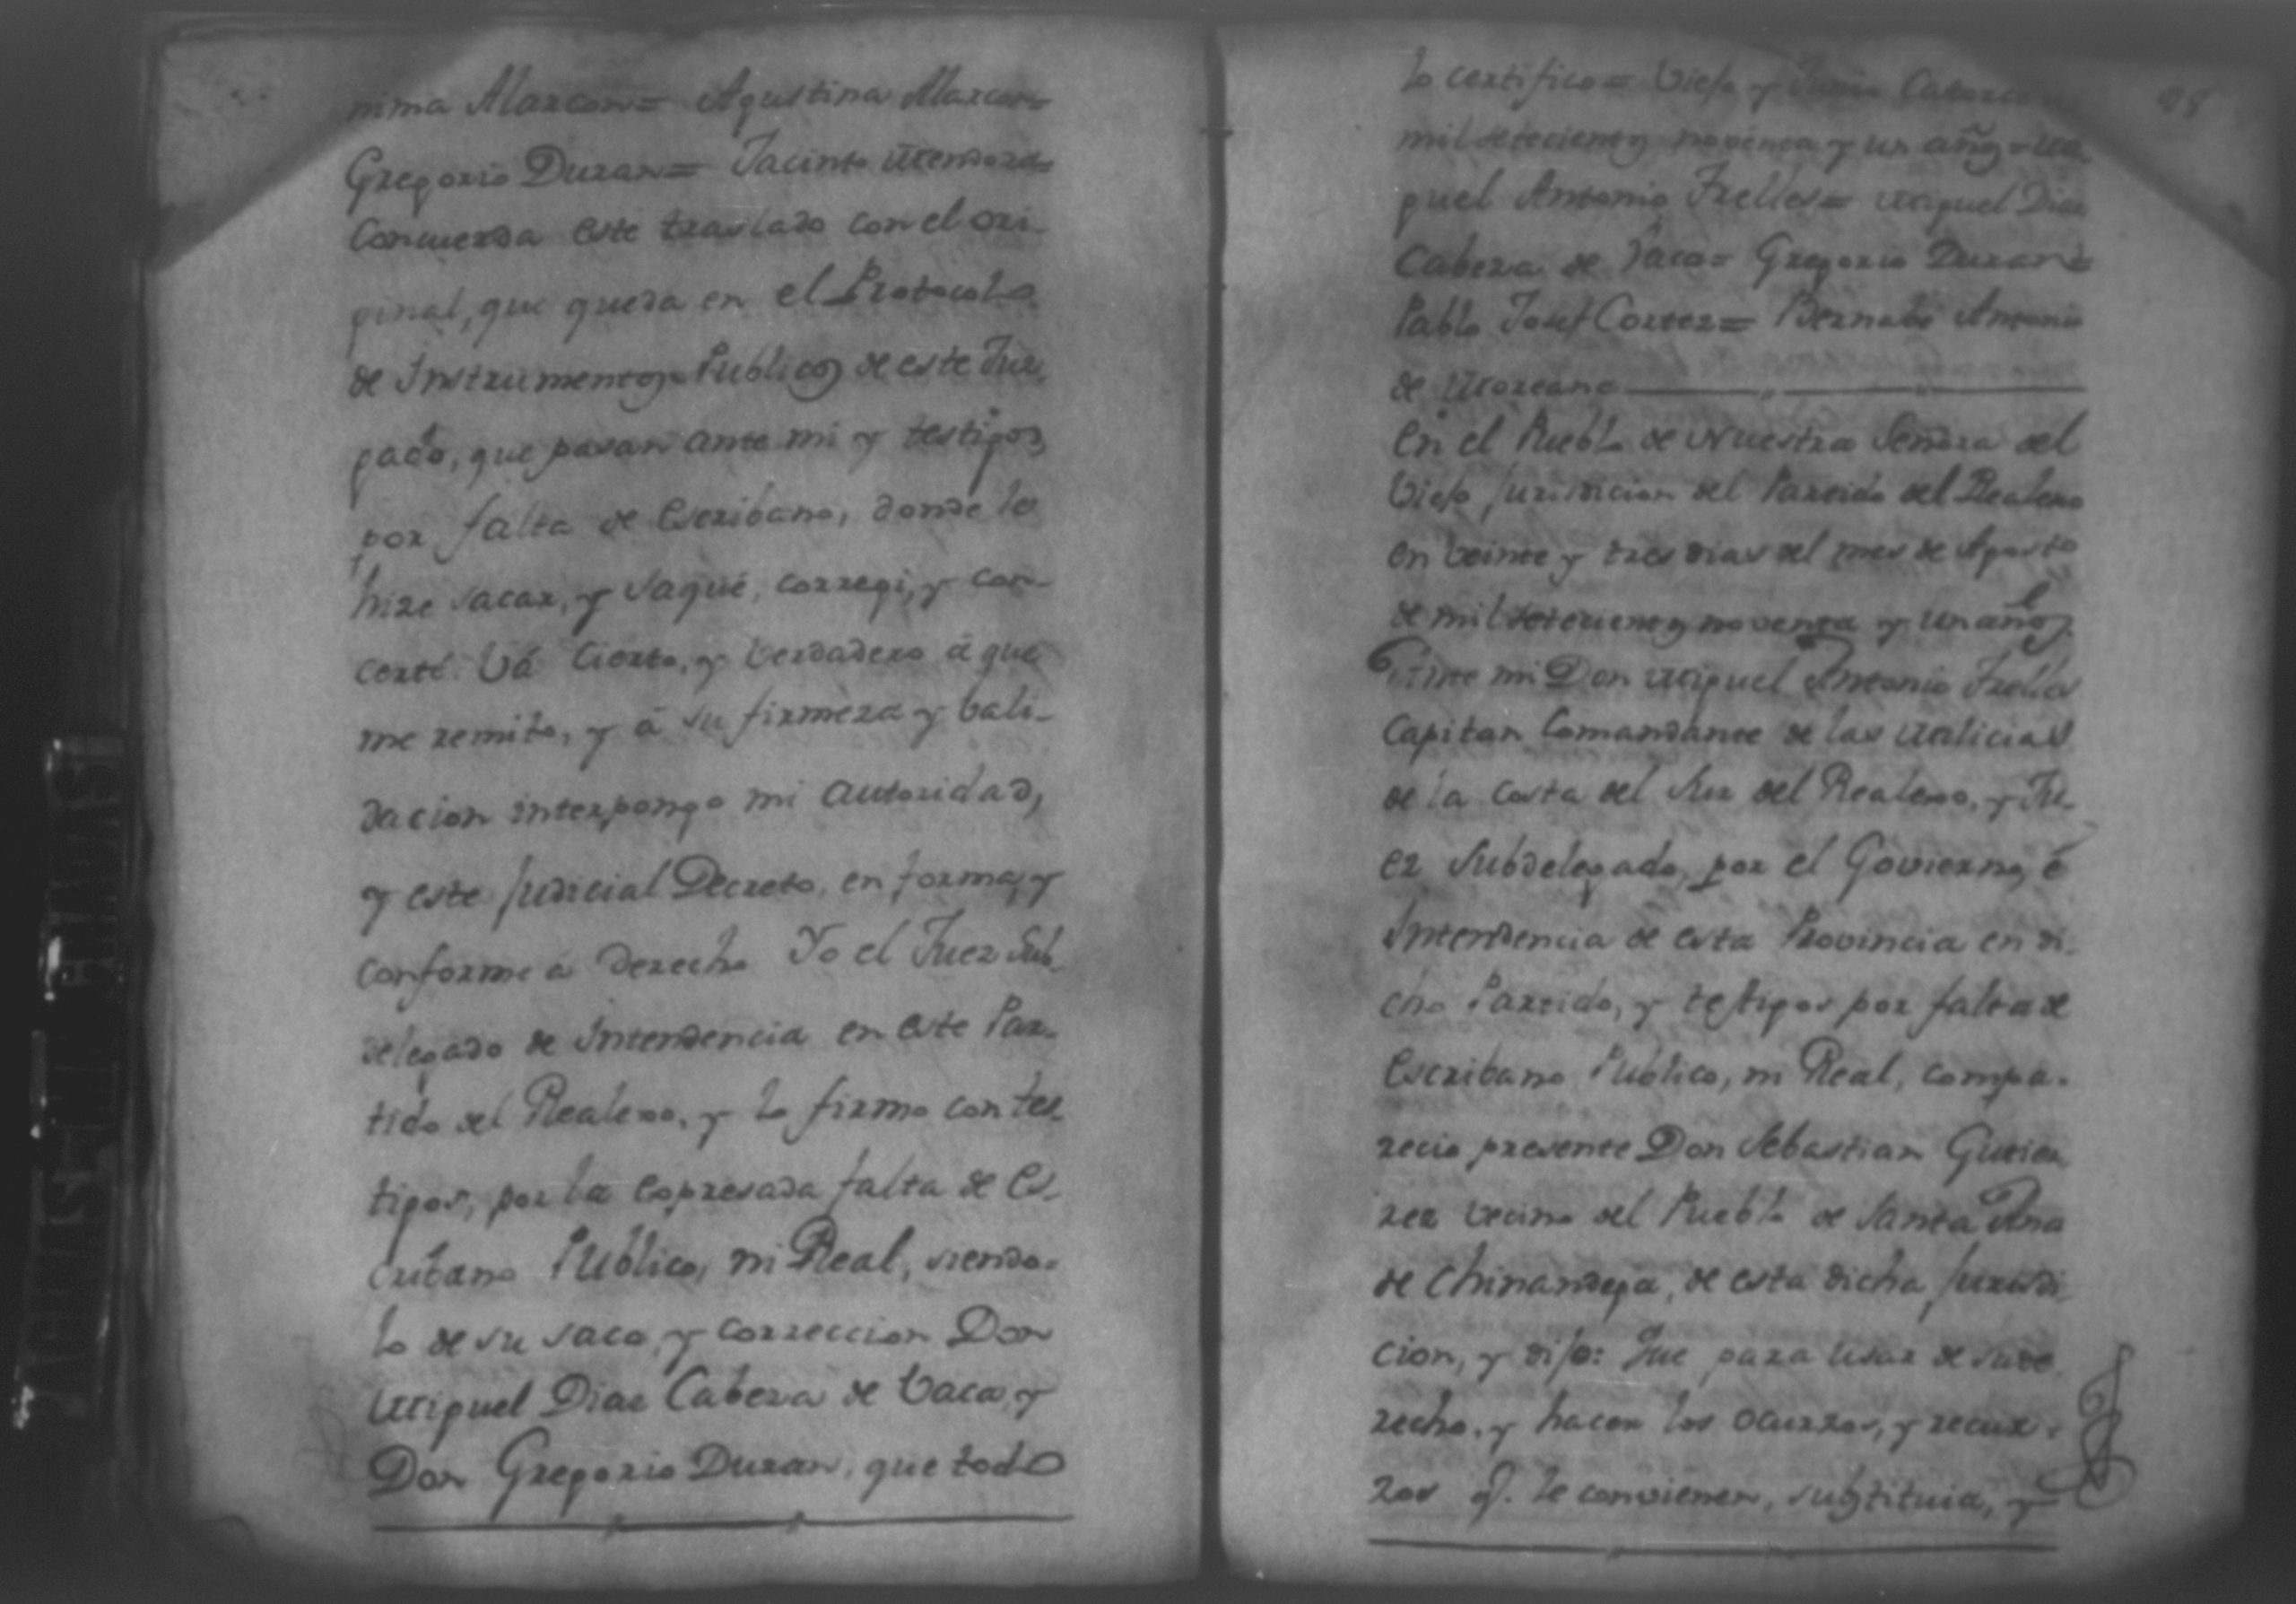 nima Alarcon= Agustina Alarcon=
Gregorio Duran= Jacinto Mendoza=
Concuerda este traslado con el ori-
ginal, que queda en el Protocolo
de Instrumentos Publicos de este Juz-
gado, que pasan ante mi y testigos
por falta de Escribano, donde lo
hize sacar, y saqué, corregi, y con-
certé. Vá Cierto, y verdadero á que
me remito, y á su firmeza y bali-
dacion interpongo mi autoridad,
y este judicial Decreto, en forma, y
conforme á derecho Yo el Juez Sub-
delegado de Intendencia en este Par-
tido del Realexo, y lo firmo con tes-
tigos, por la expresada falta de Es-
cribano Publico, ni Real, siendo-
lo de su saca, y correccion Don
Miguel Diaz Cabeza de Vaca, y
Don Gregorio Duran, que todo
98
lo certifico= Viejo y Junio Catorce
mil setecientos noventa y un años= Mi
guel Antonio Frelles= Miguel Diaz
Cabeza de Vaca= Gregorio Duran=
Pablo Josef Cortez= Bernabé Antonio
de Moreano
En el Pueblo de Nuestra Señora del
Viejo, jurisdicion del Partido del Realexo
en veinte y tres dias del mes de Agosto
de mil setecientos noventa y un años.
Ante mi Don Miguel Antonio Frelles
Capitan Comandante de las Milicias
de la Costa del Sur del Realexo, y Ju-
ez Subdelegado, por el Govierno, é
Intendencia de esta Provincia en di-
cho Partido, y testigos por falta de
Escribano Publico, ni Real, compa-
recio presente Don Sebastian Gutier
rez vecino del Pueblo de Santa Ana
de Chinandega, de esta dicha jurisdi-
cion, y dijo: Que para usar de su de
recho, y hacer los ocursos, y recur-
zos q. le convienen, substituia, y